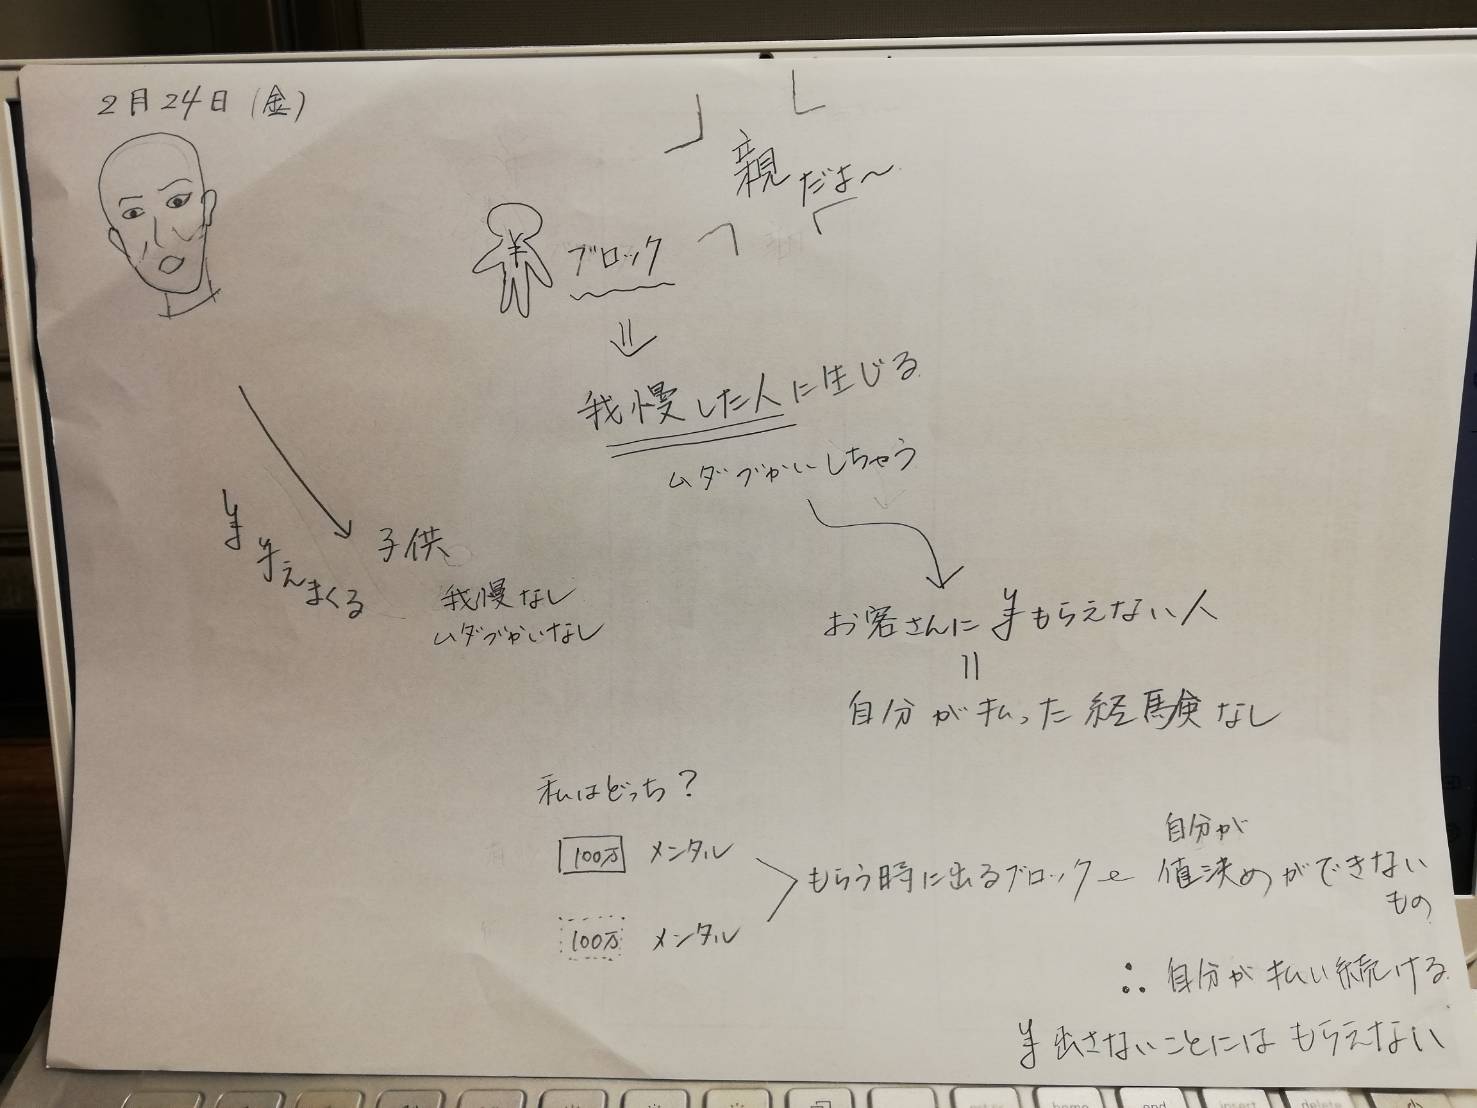 2月24日(金)
親だよ〜
¥
ブロック
我慢した人に生じる
ムダづかいしちゃう
¥
¥えまくる
子供
我慢なし
ムダづかいなし
お客さんに¥もらえない人
=
自分が払った経験なし
私はどっち?
100万 メンタル
100万 メンタル
もらう時に出るブロック
自分が
値決めができない
もの
∴自分が払い続ける
¥出さないことにはもらえない